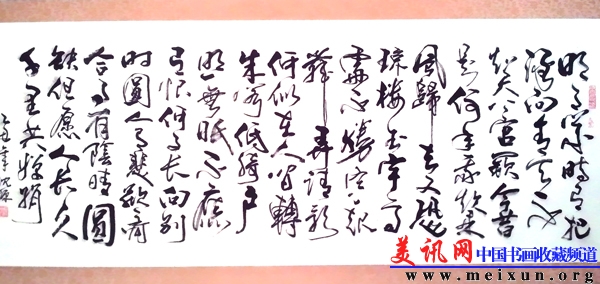 明月几時有把
酒问青天不
知天上宫歌今昔
是何年我欲乘
風歸去又恐
瓊樓玉宇高
處不勝寒起
舞弄清影
何似在人间轉
朱阁低绮户
照無眠不應
有恨何事长向别
时圆人有悲歡离
合月有陰晴圆
缺但愿人长久
千里共婵娟
美讯网 中国书画收藏频道
www.meixun.org